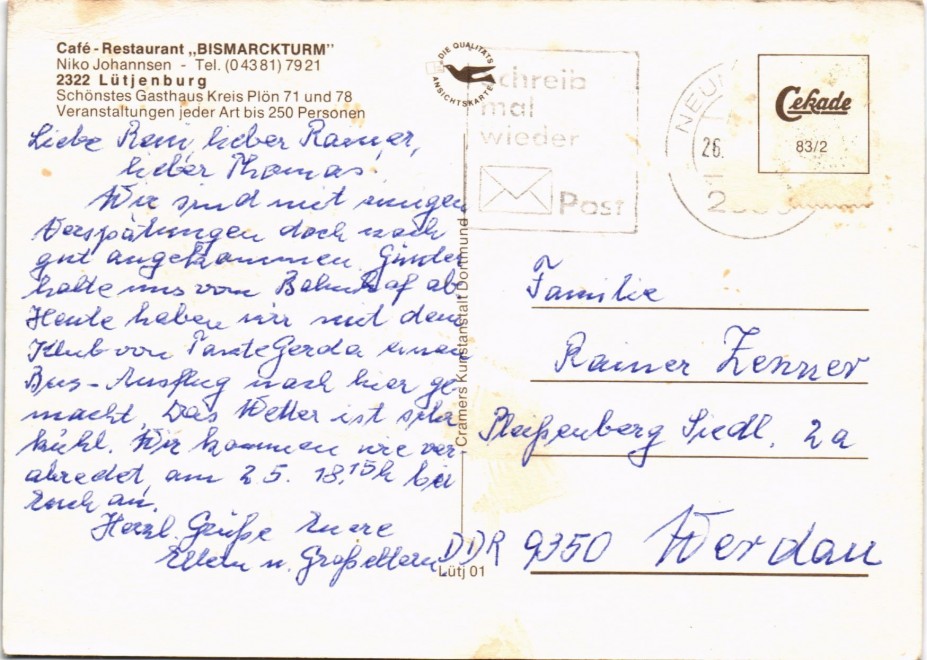 Café - Restaurant „BISMARCKTURM"
Niko Johannsen - Tel. (0 43 81) 79 21
2322 Lütjenburg
Schönstes Gasthaus Kreis Plön 71 und 78
Veranstaltungen jeder Art bis 250 Personen
Liebe Reni, lieber Rainer,
lieber Thomas,
Wir sind mit einigen
Verspätungen doch noch
gut angekommen.
holte uns vom Bahnhof ab
Heute haben wir mit dem
Klub von Tante Gerda einen
Bus-Ausflug nach hier ge-
macht. Das Wetter ist sehr
kühl. Wir kommen wie ver-
abredet, am 2.5. 18,15h bei
Euch an.
Herzl. Grüße Eure
Eltern u. Großeltern
DIE QUALITÄTS
ANSICHTSKARTE
Schreib
mal
wieder
Post
NEU
26.
2
Cekade
83/2
Cramers Kunstanstalt Dortmund
Familie
Rainer Zenner
Pleißenberg Siedl. 2a
DDR 9350 Werdau
Lütj 01